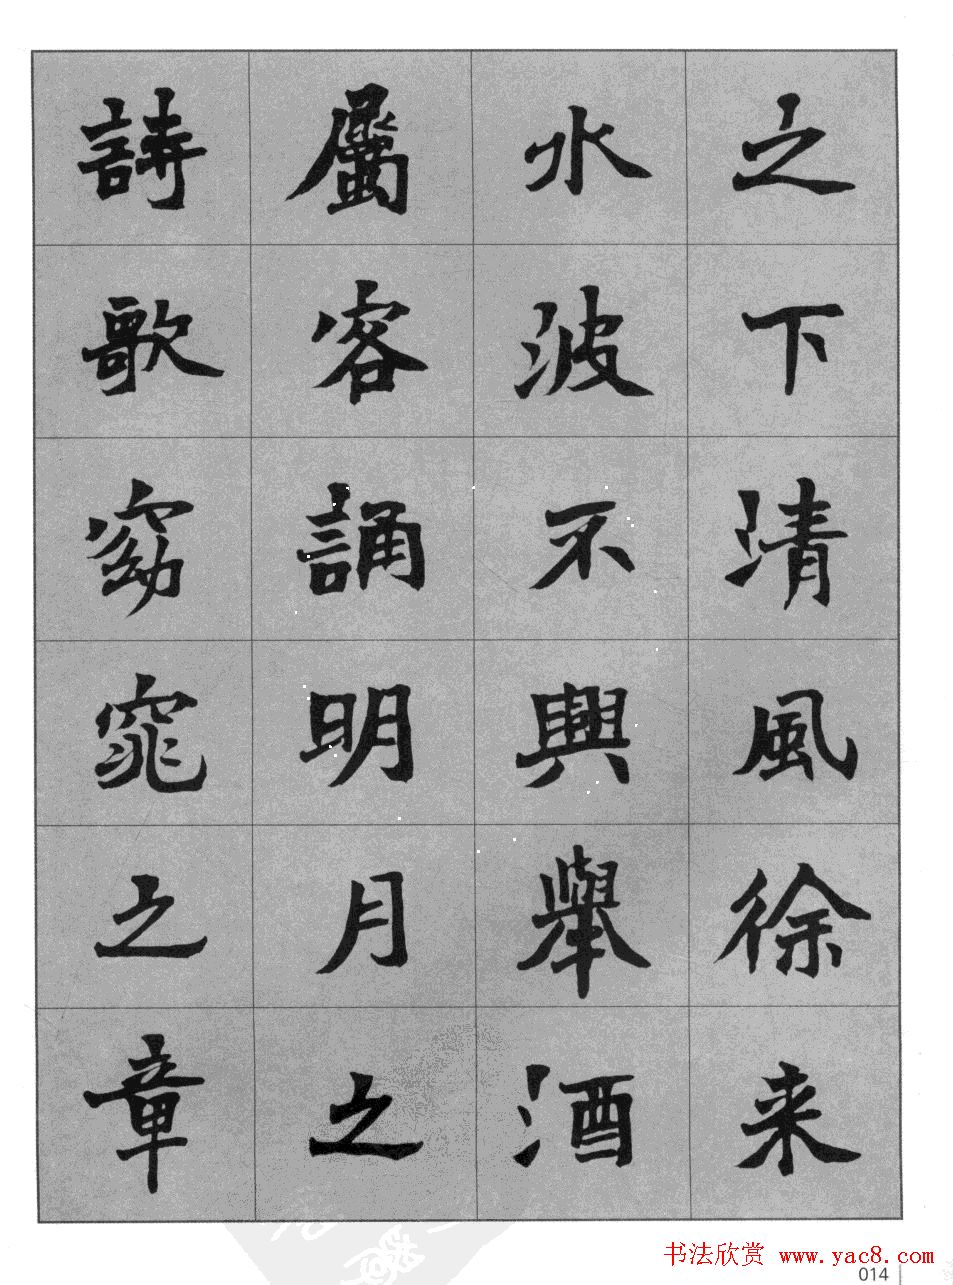 之下清風徐来
水波不興舉酒
屬客誦明月之
詩歌窈窕之章
书法欣赏 www.yac8.com
014